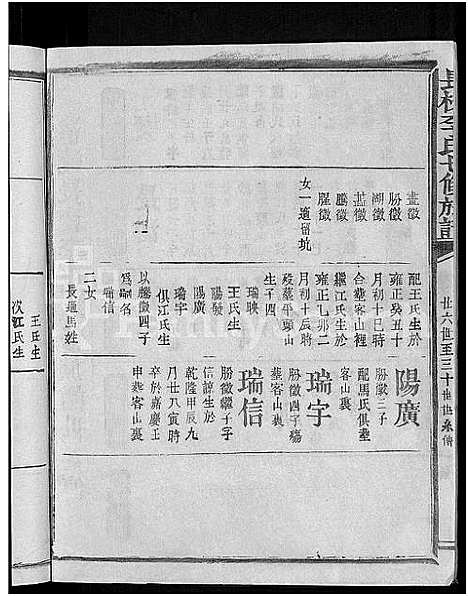 長樓李氏七修族譜
廿六世至三十世世系傳
畫徵
勝徵
湖徵
藍徵
騰徵
耀徵
女一適留坑
配王氏生於
雍正癸五十
月初十巳時
合塟客山裡
繼江氏生於
雍正乙卯二
月初十辰時
歿塟平頭山
生子四
瑞映
王氏生
陽發
陽廣
瑞宇
俱江氏生
以騰徵四子
為嗣名
瑞信
二女
長適馬姓
次江氏生
王氏生
陽廣
勝徵三子
配馬氏俱塟
客山裏
瑞宇
勝徵四子殤
塟客山裏
瑞信
勝徵繼子字
信諒生於
乾隆甲辰九
月廿八寅時
卒於嘉慶壬
申塟客山裏